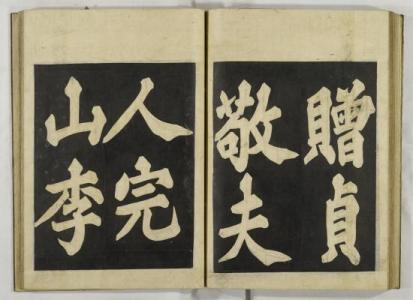 贈貞
敬夫
人完
山李